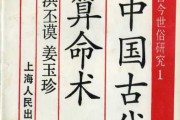 古今世俗研究1
中国古代
算命术
洪丕谟 姜玉珍
上海人民出